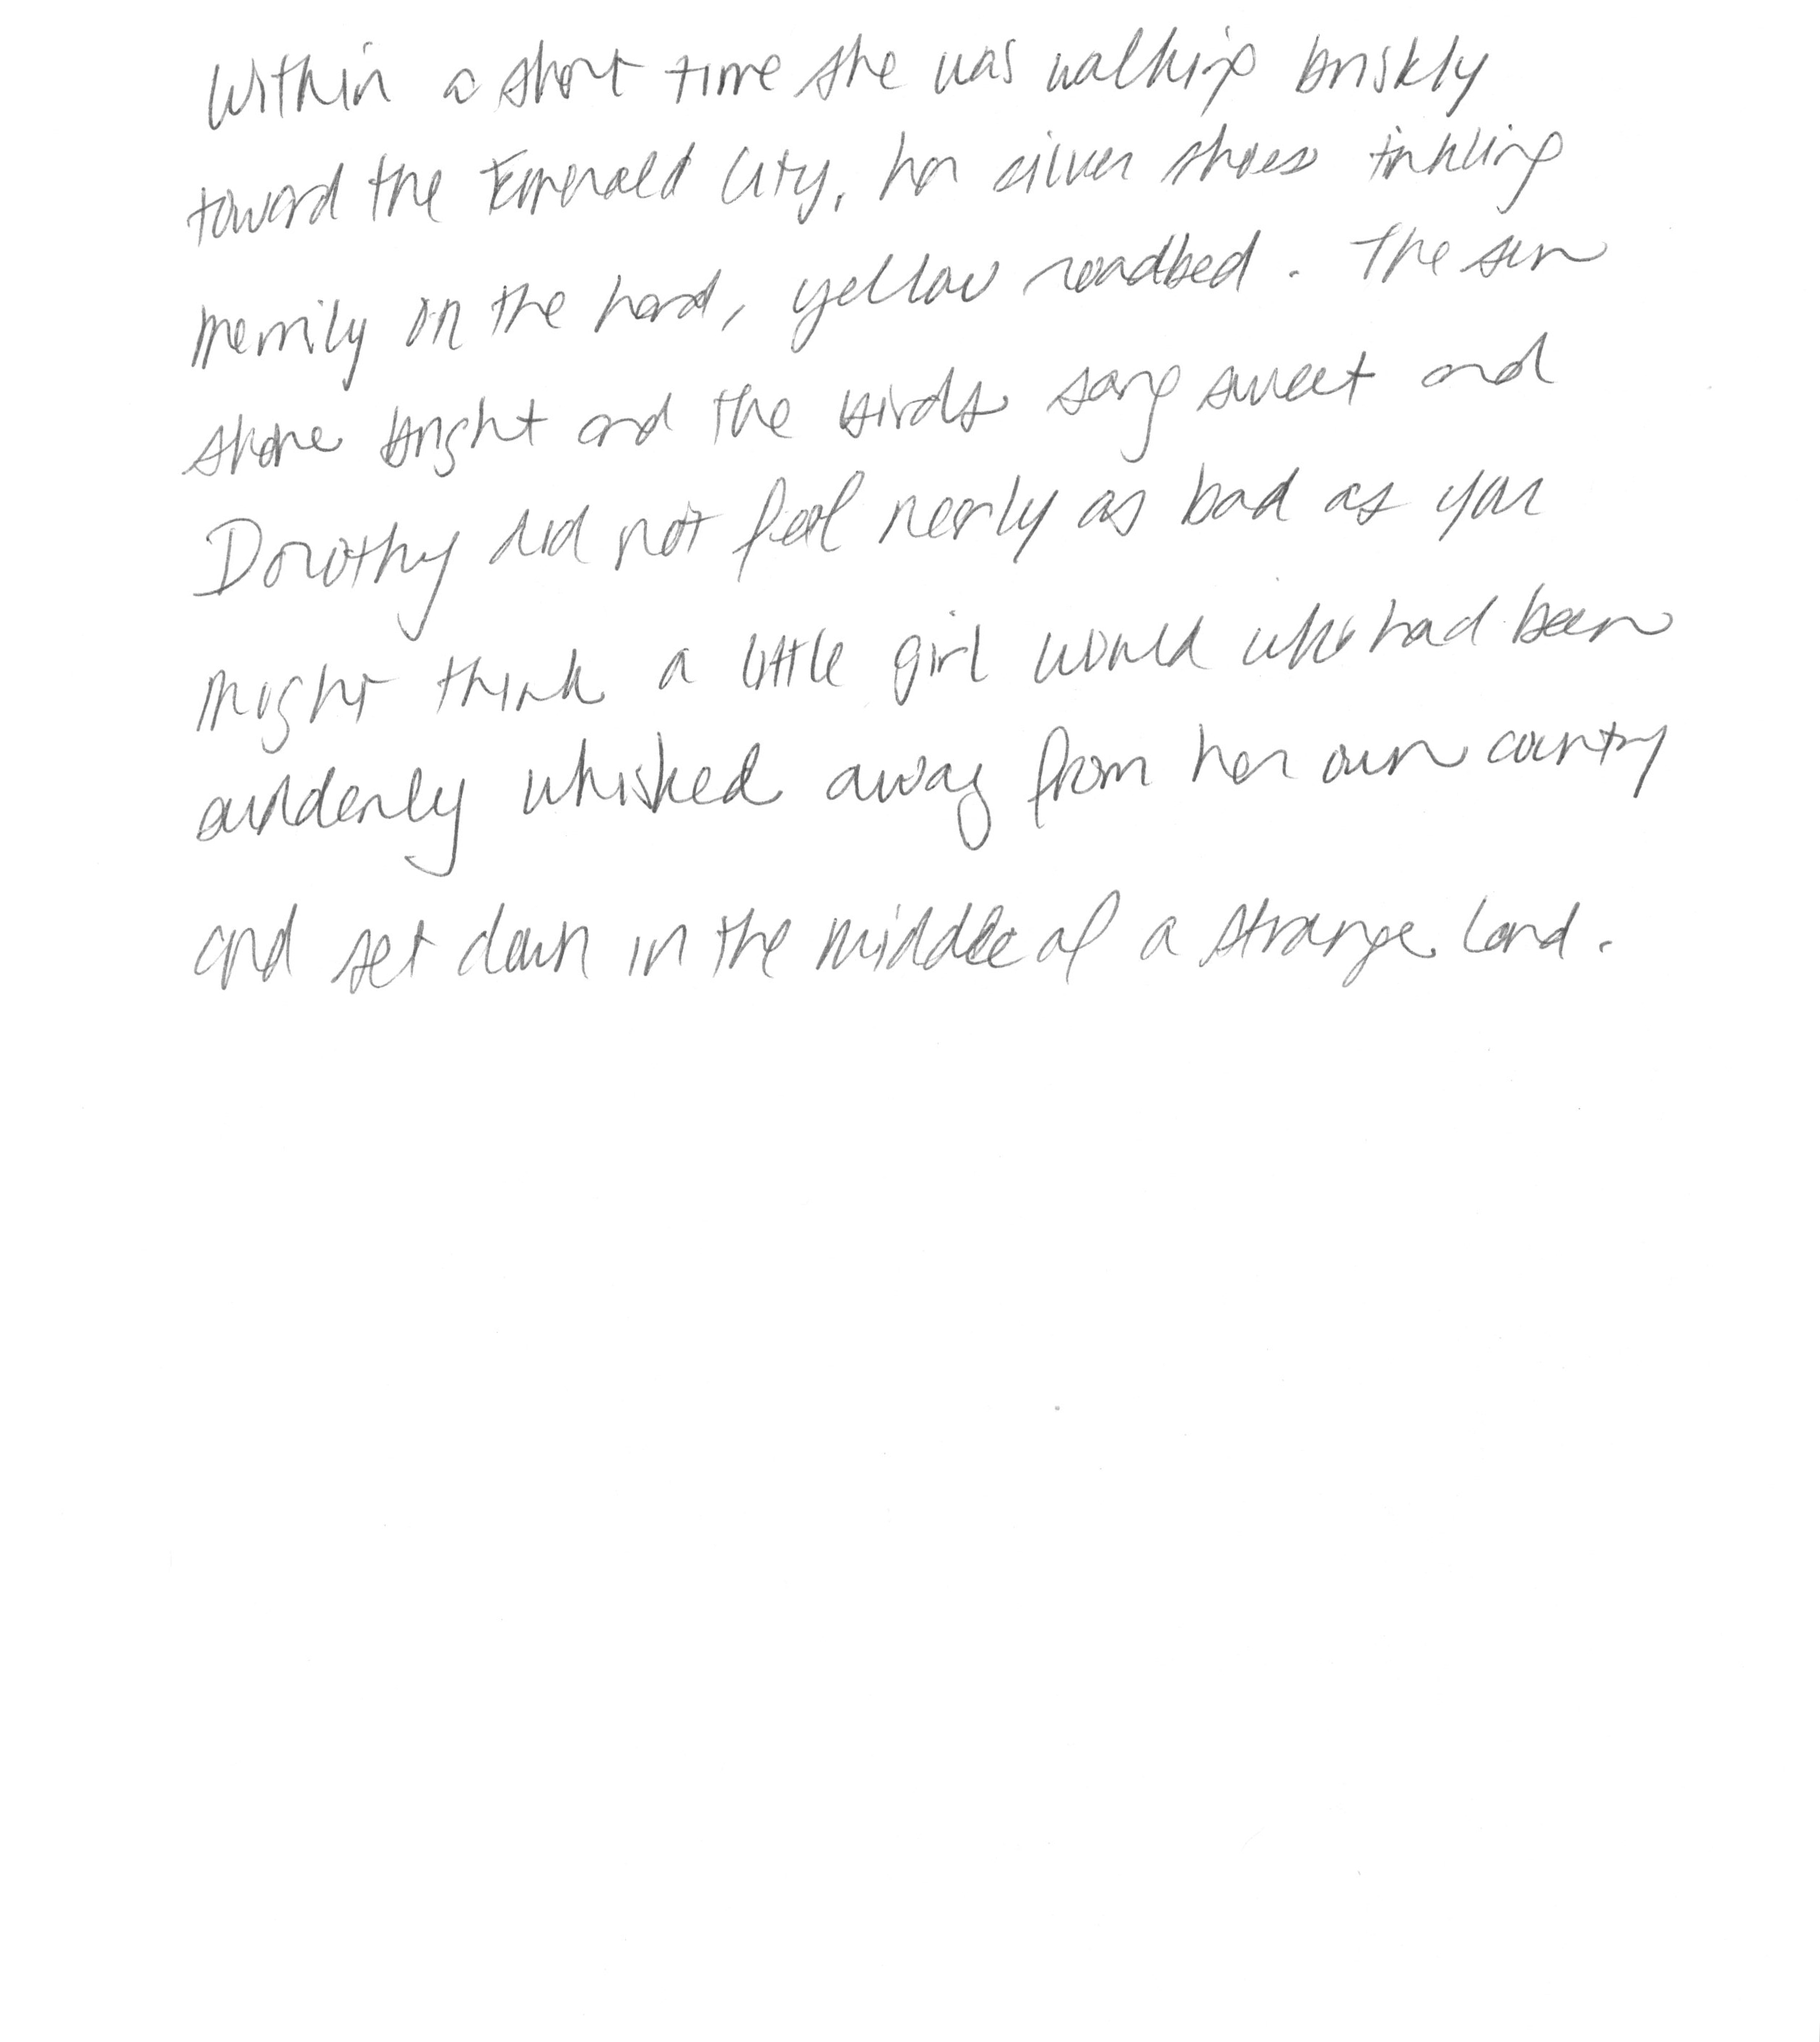 Within a short time she was walking briskly
toward the Emerald City, her silver shoes tinkling
merrily on the hard, yellow roadbed. The sun
shone bright and the birds sang sweet and
Dorothy did not feel nearly as bad as you
might think a little girl would who had been
suddenly whisked away from her own country
and set down in the middle of a strange land.